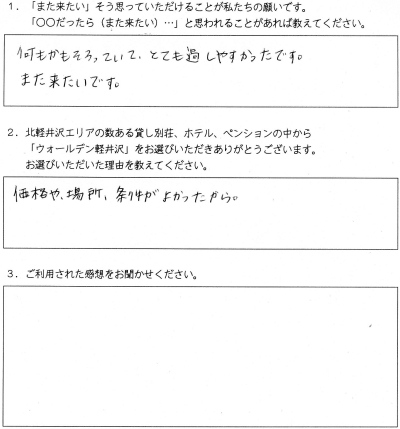 1．「また来たい」そう思っていただけることが私たちの願いです。
「〇〇だったら（また来たい）…」と思われることがあれば教えてください。
何もかもそろっていて、とても過しやすかったです。
また来たいです。
2．北軽井沢エリアの数ある貸し別荘、ホテル、ペンションの中から
「ウォールデン軽井沢」をお選びいただきありがとうございます。
お選びいただいた理由を教えてください。
価格や、場所、条件がよかったから。
3．ご利用された感想をお聞かせください。